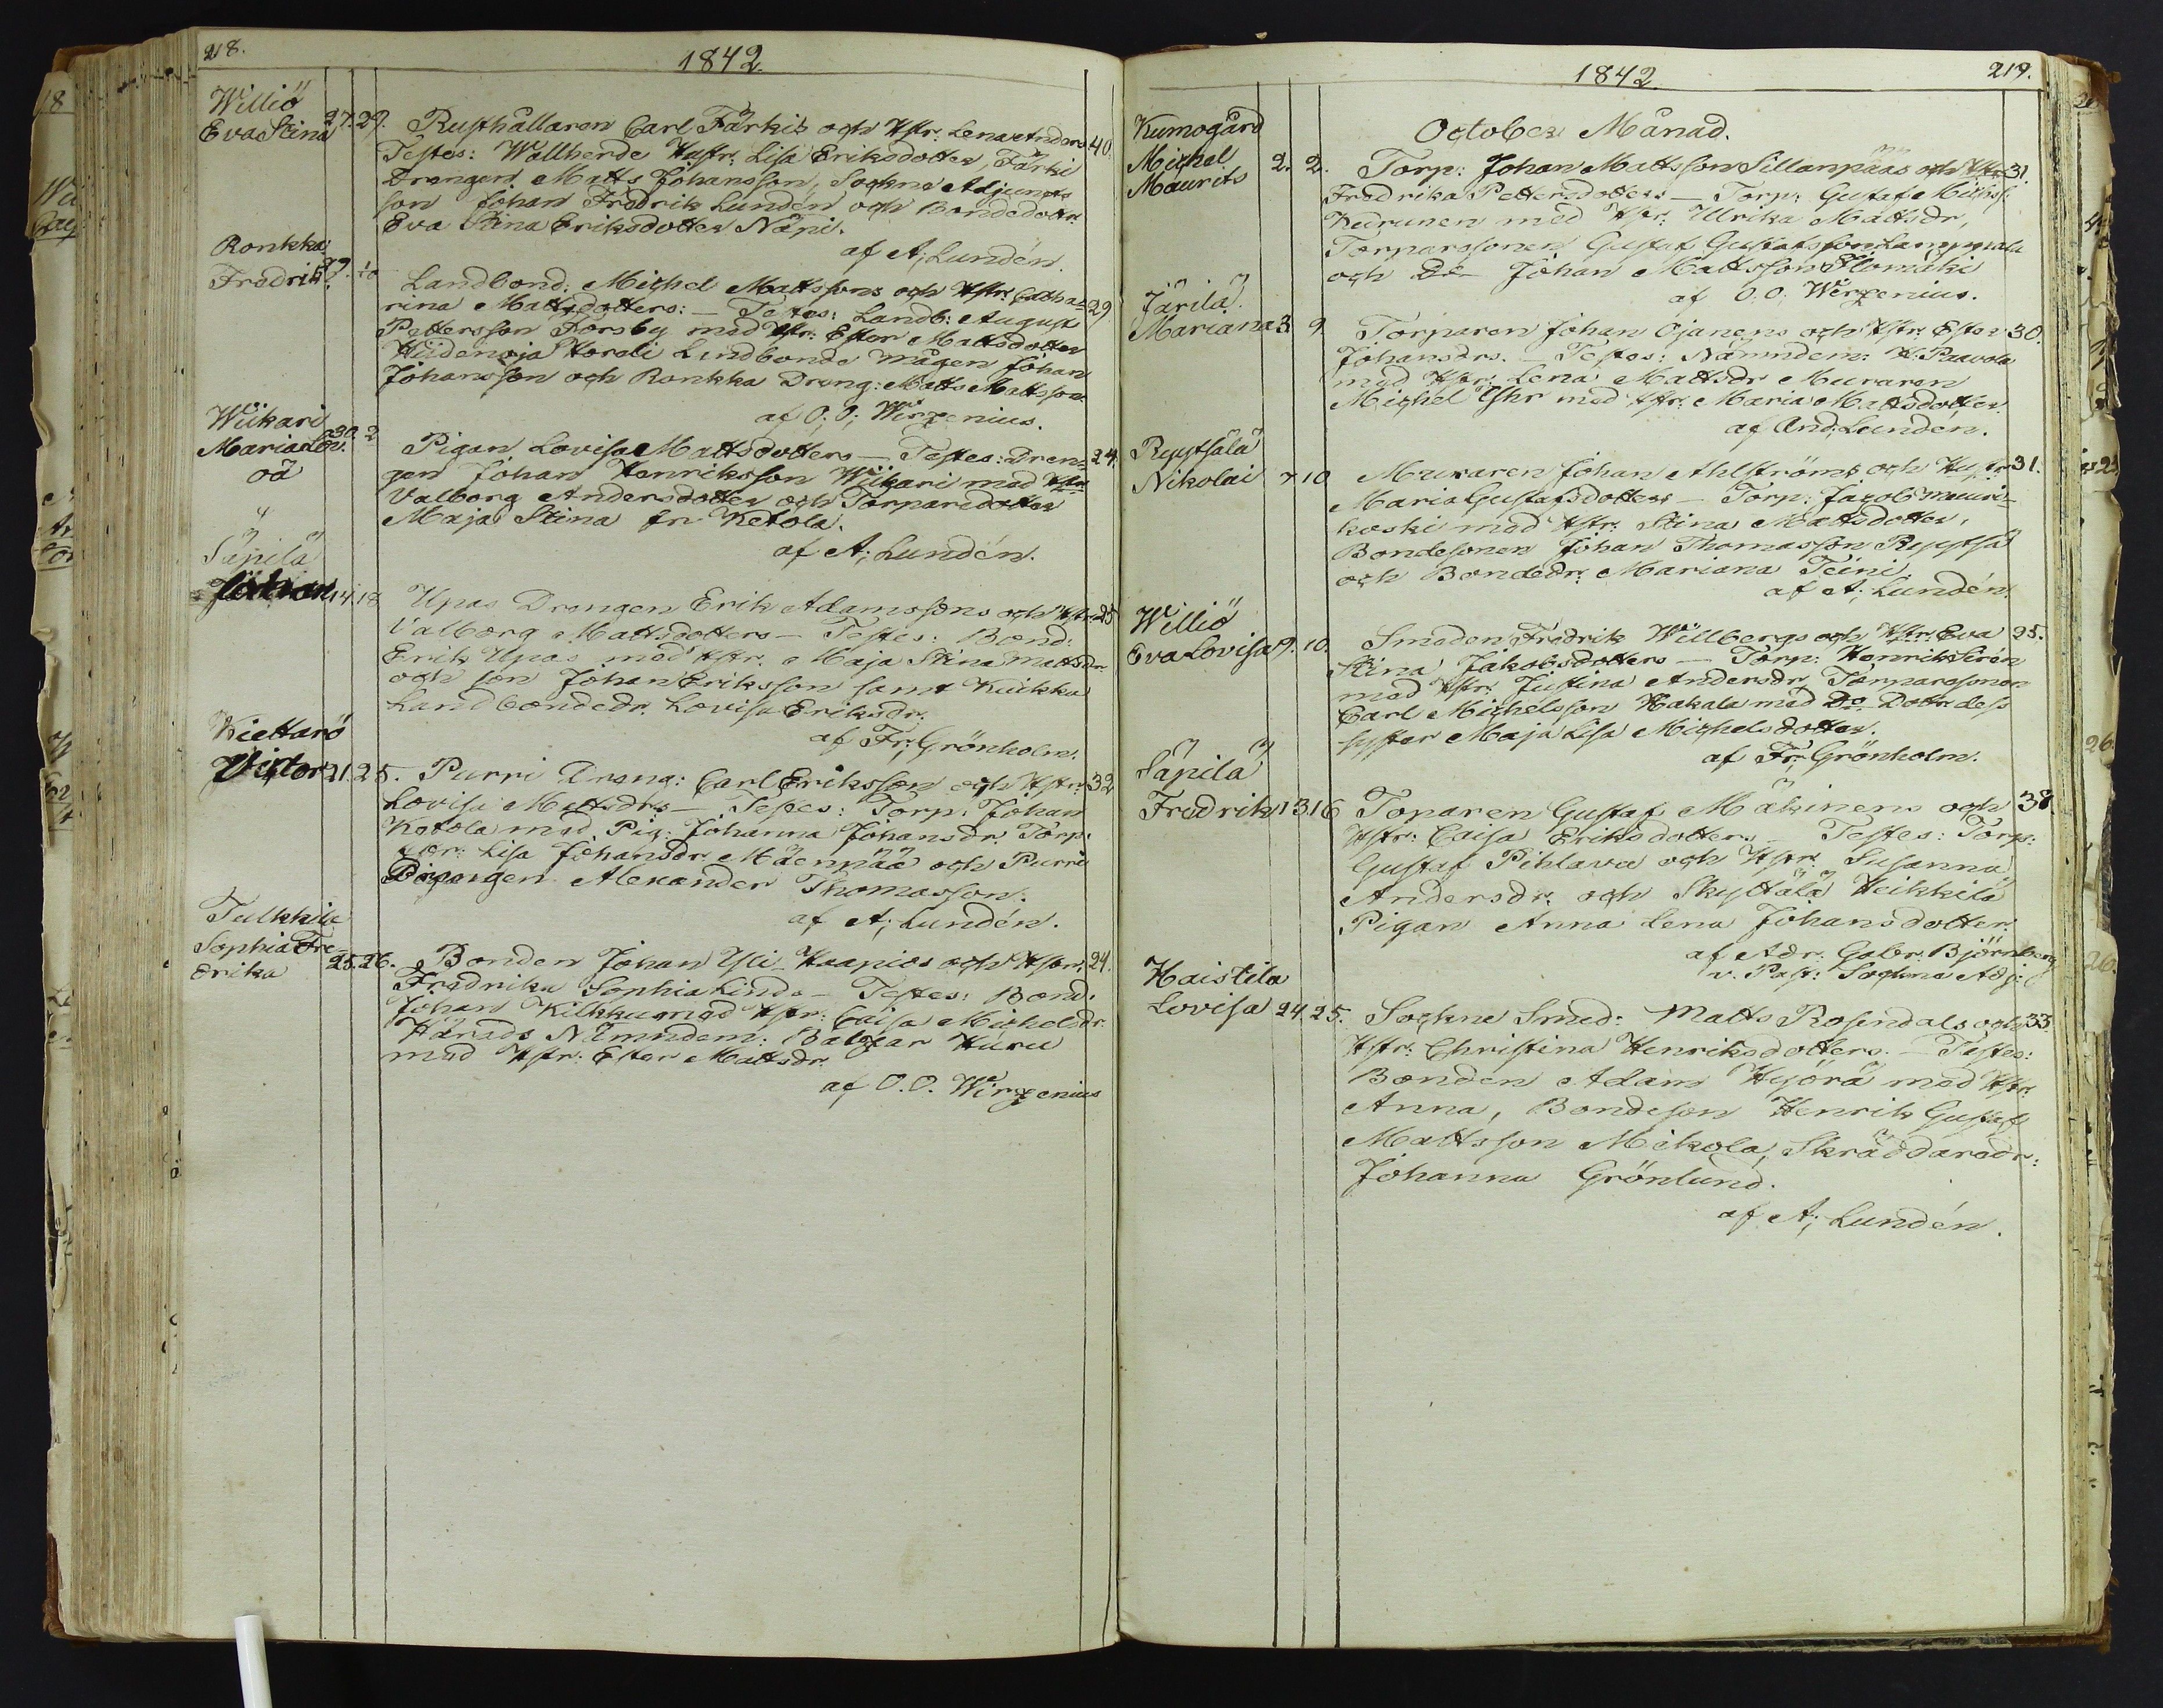 218.
1842.
Williö
Eva Stina 27. 29. Rusthållaren Carl Färkis och Hstr. Lena Anders 40.
Testes: Wallherde Hustr. Lisa Eriksdotter, Färki
Drengen Matts Johansson, Sockne Adjuncts
son Johan Fredrik Lundén och Bondedottr.
Eva Stina Eriksdotter Näpi.
af A; Lundén.
Ronkka
Fredrik. 29. Landbond. Michel Mattssons och Hstr. Catha= 29
rina Mattsdotters: — Testes: Landb: August
Pettersson Forsby med Hstr. Ester Mattsdotter
Heidenoja Landbonde mågen Johan
Johansson och Ronkka Dreng: Matts Mattsson.
af O; O; Wirzenius.
Wiikari
Maria Lov. 30. 2 Pigan Lovisa Mattsdotters — Testes: Dren= 24.
oä gen Johan Henriksson Wiikari med Hstr
Valborg Andersdotter och Torparedotter
Maja Stina fr. Ketola.
af A; Lundén.
Säpilä
Johan 14. 18 Upas Drengen Erik Adamssons och Hstr. 25
Valborg Mattsdotters — Testes: Bond:
Erik Upas med Hstr. Maja Stina Mattsdr
och son Johan Eriksson samt Kuikka
Landbondedr. Lovisa Eriksdr.
af Fr; Grönholm.
Kiettarö
Victor 21. 25. Purri Dreng: Carl Eriksson och Hstr. 32
Lovisa Mattsdrs — Testes: Torp: Johan
Ketola med Pig: Johanna Johansdr. Torp:
Lisa Johansdr. Mäenpää och Purri
Drengen Alexander Thomasson.
af A; Lundén.
Tulkkila
Sophia Fre=
drika 25. 26. Bonden Johan Yli Haapios och Hstr. 24.
Fredrika Sophia Linds — Testes: Bond:
Johan Kilkku med Hstr: Caisa Michelsdr.
Härads Nämndem: Baltzar Huru
med Hstr: Ester Mattsdr.
af O. O. Wirzenius
1842
219.
October Månad.
Kumogård
Michel
Maurits 2. 2. Torp: Johan Mattsson Sillanpääs och Hstr 31.
Fredrika Pettersdotters — Torp: Gustaf Michss:
med Hstr. Ulrika Mattsdr,
Torparesonen Gustaf Gustafsson Lammala
och Do Johan Mattsson Ilomäki
af O. O. Wirzenius.
Järilä.
Mariana 3. 9. Torparen Johan Ojanens och Hstr. Ester 30.
Johansdrs. — Testes: Nämndem: H. Paavola
med Hstr. Lena Mattsdr Muraren
Michel Yhr med Hstr. Maria Mattsdotter
af And; Lundén.
Repstsälä
Nikolai 7 10 Muraren Johan Ahlströms och Hustr 31.
Maria Gustafsdotters — Torp: Jacob Muuri=
koski med Hstr. Stina Mattsdotter,
Bondesonen Johan Thomasson
och Bondedr. Mariana Teini
af A; Lundén.
Williö
Eva Lovisa 9. 10. Smeden Fredrik Willbergs och Hstr. Eva 25.
Stina Jakobsdotters — Torp: Henrik Sirén
med Hstr: Justina Andersdr Torparesonen
Carl Michelsson Hakala med Do Dottr dess
syster Maja Lisa Michelsdotter.
af Fr; Grönholm.
Säpilä
Fredrik 13 16 Toparen Gustaf Mäkinens och 38.
Hstr: Caisa Eriksdotters — Testes: Torp:
Gustaf Pihlava och Hstr. Susanna
Andersdr. och Skyltälä Heikkilä
Pigan Anna Lena Johansdotter.
af Adr. Gabr: Björnberg
v. Past: Sockne Adj:
Haistila
Lovisa 24 25. Sockne Smed: Matts Rosendals och 33
Hstr: Christina Henriksdotters. — Testes:
Bonden Adam Hyörä med Hstr.
Anna, Bondeson Henrik Gustaf
Mattsson Mikola, Skräddaredr:
Johanna Grönlund.
af A; Lundén.